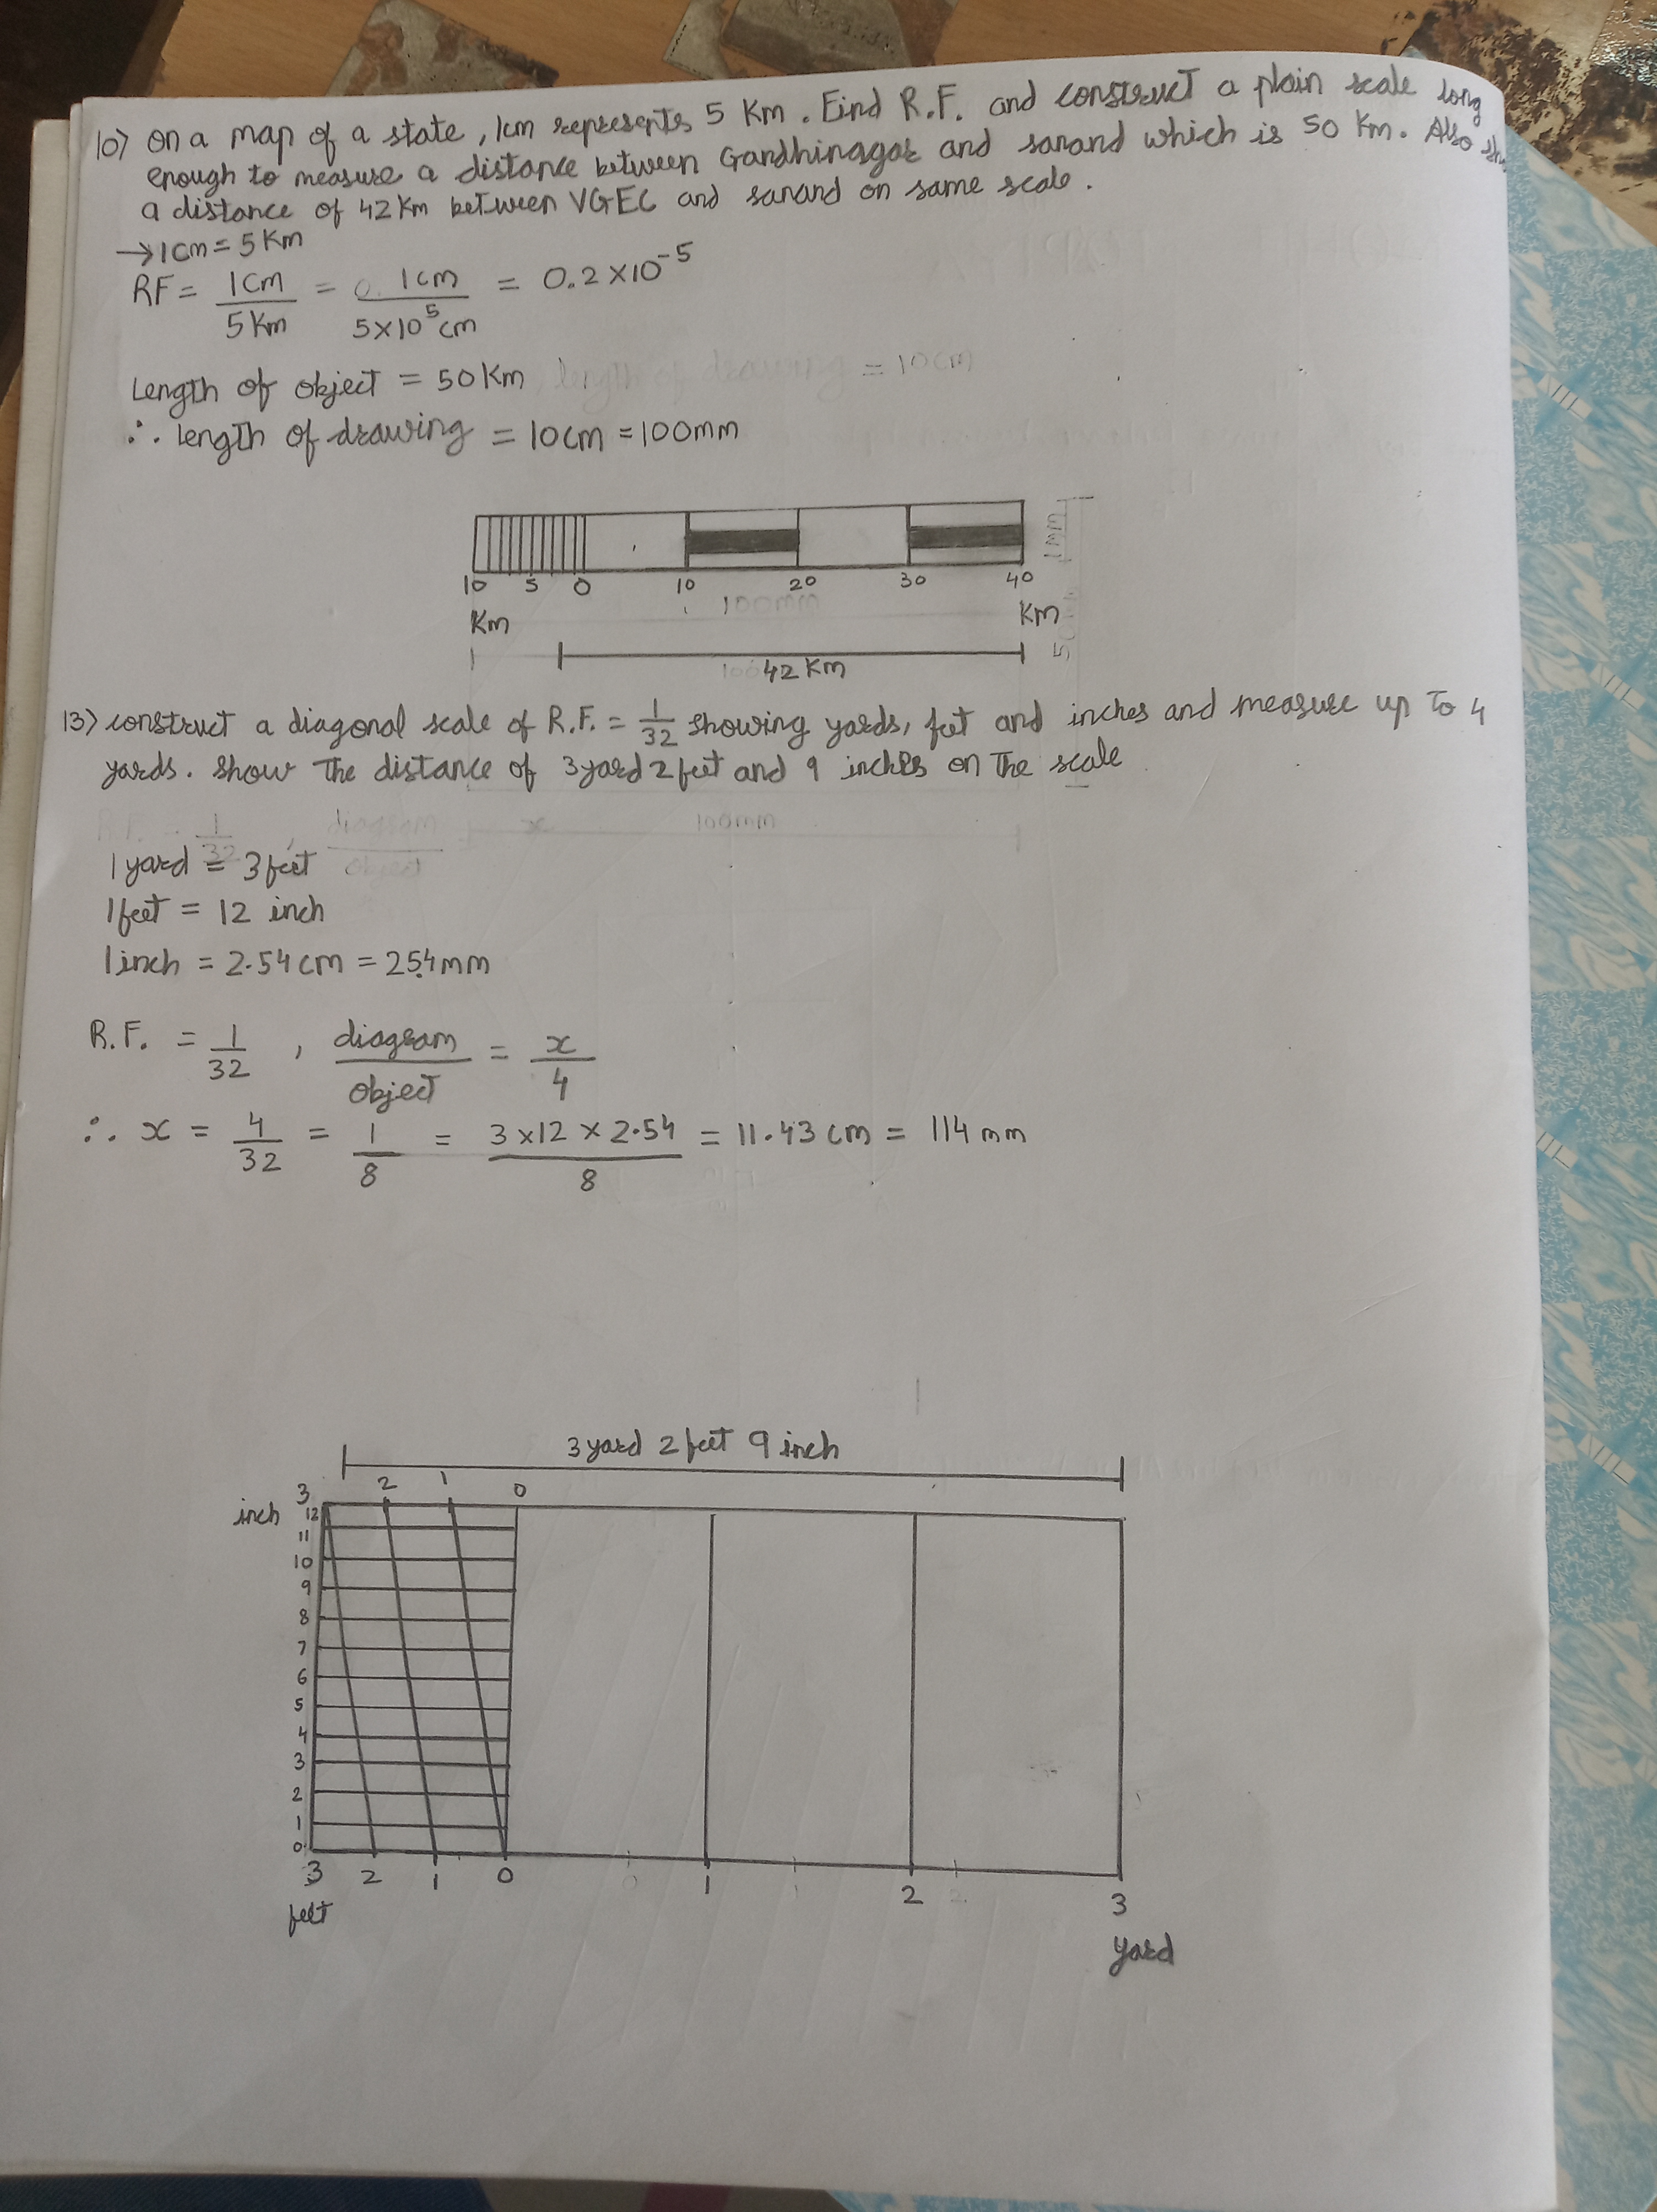 10) on a map of a state, 1cm represents 5 Km. Find R.F. and construct a plain scale long
enough to measure a distance between Gandhinagar and sanand which is 50 Km. Also
a distance of 42 Km between VGEC and sanand on same scale.
→ 1cm = 5 Km
RF = 1cm / 5 Km = 1cm / 5×10^5 cm = 0.2×10^-5
Length of object = 50 Km
∴ length of drawing = 10cm = 100mm
10 5 0 10 20 30 40
Km Km
42 Km
13) construct a diagonal scale of R.F. = 1/32 showing yards, feet and inches and measure up to 4
yards. show the distance of 3 yard 2 feet and 9 inches on the scale
1 yard = 3 feet
1 feet = 12 inch
1 inch = 2.54 cm = 25.4 mm
R.F. = 1/32 , diagram / object = x / 4
∴ x = 4/32 = 1/8 = 3×12×2.54 / 8 = 11.43 cm = 114 mm
3 yard 2 feet 9 inch
3 2 1 0
inch 12
11
10
9
8
7
6
5
4
3
2
1
0
3 2 1 0 1 2 3
feet yard